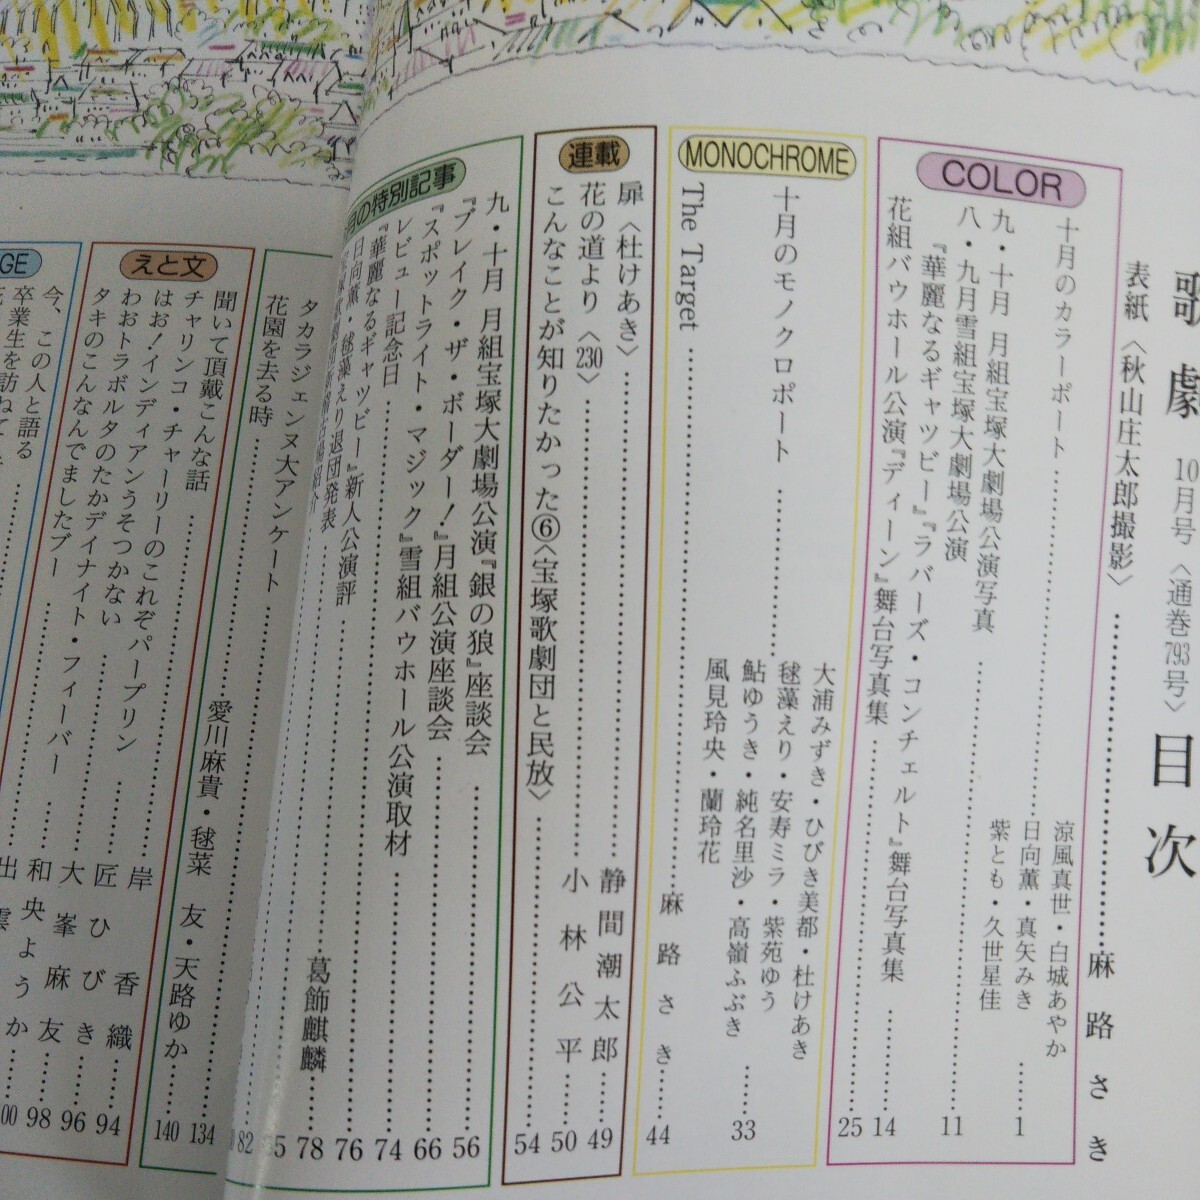 歌劇 10月号〈通巻793号〉目次
表紙〈秋山庄太郎撮影〉……麻路さき
COLOR
十月のカラーポート……涼風真世・白城あやか
日向薫・真矢みき
紫とも・久世星佳……1
九・十月 月組宝塚大劇場公演写真……11
八・九月雪組宝塚大劇場公演
『華麗なるギャツビー』『ラバーズ・コンチェルト』舞台写真集……14
花組バウホール公演『ディーン』舞台写真集……25
MONOCHROME
十月のモノクロポート……大浦みずき・ひびき美都・杜けあき
毬藻えり・安寿ミラ・紫苑ゆう
鮎ゆうき・純名里沙・高嶺ふぶき
風見玲央・蘭玲花……33
The Target……麻路さき……44
連載
扉〈杜けあき〉……静間潮太郎……49
花の道より〈230〉……小林公平……50
こんなことが知りたかった⑥〈宝塚歌劇団と民放〉……54
月の特別記事
九・十月 月組宝塚大劇場公演『銀の狼』座談会……56
『ブレイク・ザ・ボーダー!』月組公演座談会……66
『スポットライト・マジック』雪組バウホール公演取材……74
レビュー記念日……76
『華麗なるギャツビー』新人公演評……葛飾麒麟……78
日向薫・毬藻えり退団発表
タカラジェンヌ大アンケート
花園を去る時
聞いて頂戴こんな話……愛川麻貴・毬菜 友・天路ゆか
134
140
えと文
チャリンコ・チャーリーのこれぞパープリン……岸 香織……94
はお!インディアンうそつかない……匠 ひびき……96
わおトラボルタのたかデイナイト・フィーバー……大峯麻友……98
タキのこんなんでましたブー……和央ようか
今、この人と語る
卒業生を訪ねて